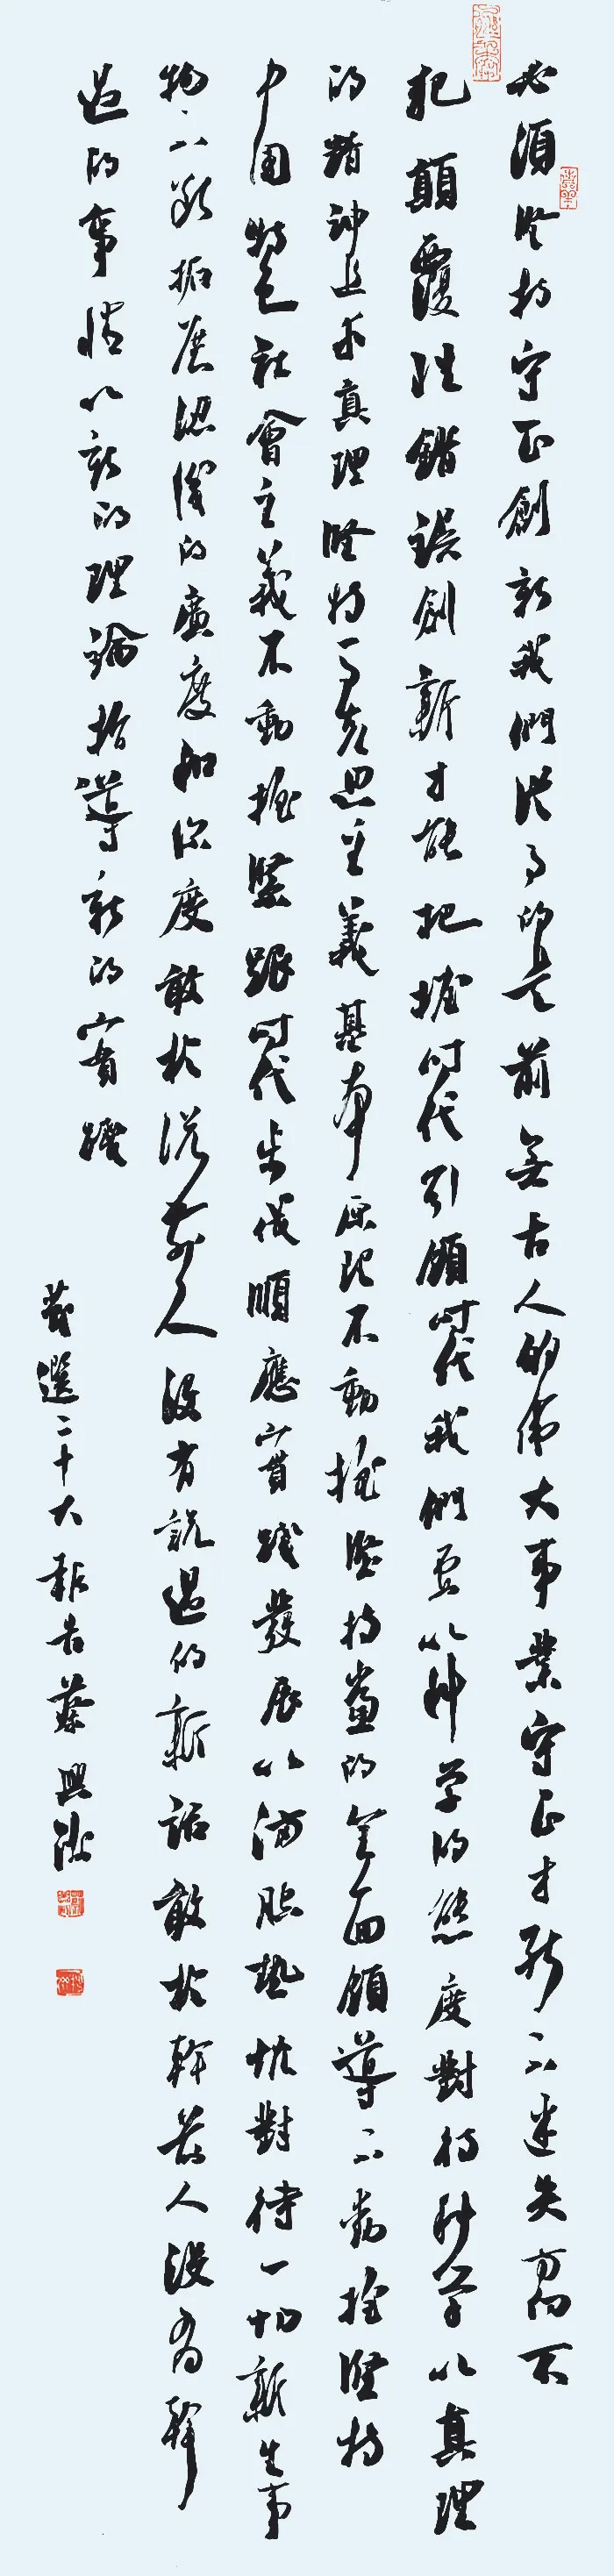 必須堅持守正創新我們從事的是前無古人的偉大事業守正才能不迷失方向不
犯顛覆性錯誤創新才能把握時代引領時代我們要以科学的態度對待科学以真理
的精神追求真理堅持马克思主義基本原理不動摇堅持黨的全面領導不動摇堅持
中国特色社會主義不動摇緊跟时代步伐順應實踐發展以满腔熱忱對待一切新生事
物不断拓展認識的廣度和深度敢於説前人沒有説過的新話敢於幹前人沒有幹
過的事情以新的理論指導新的實踐
節選二十大報告 蔡興洲